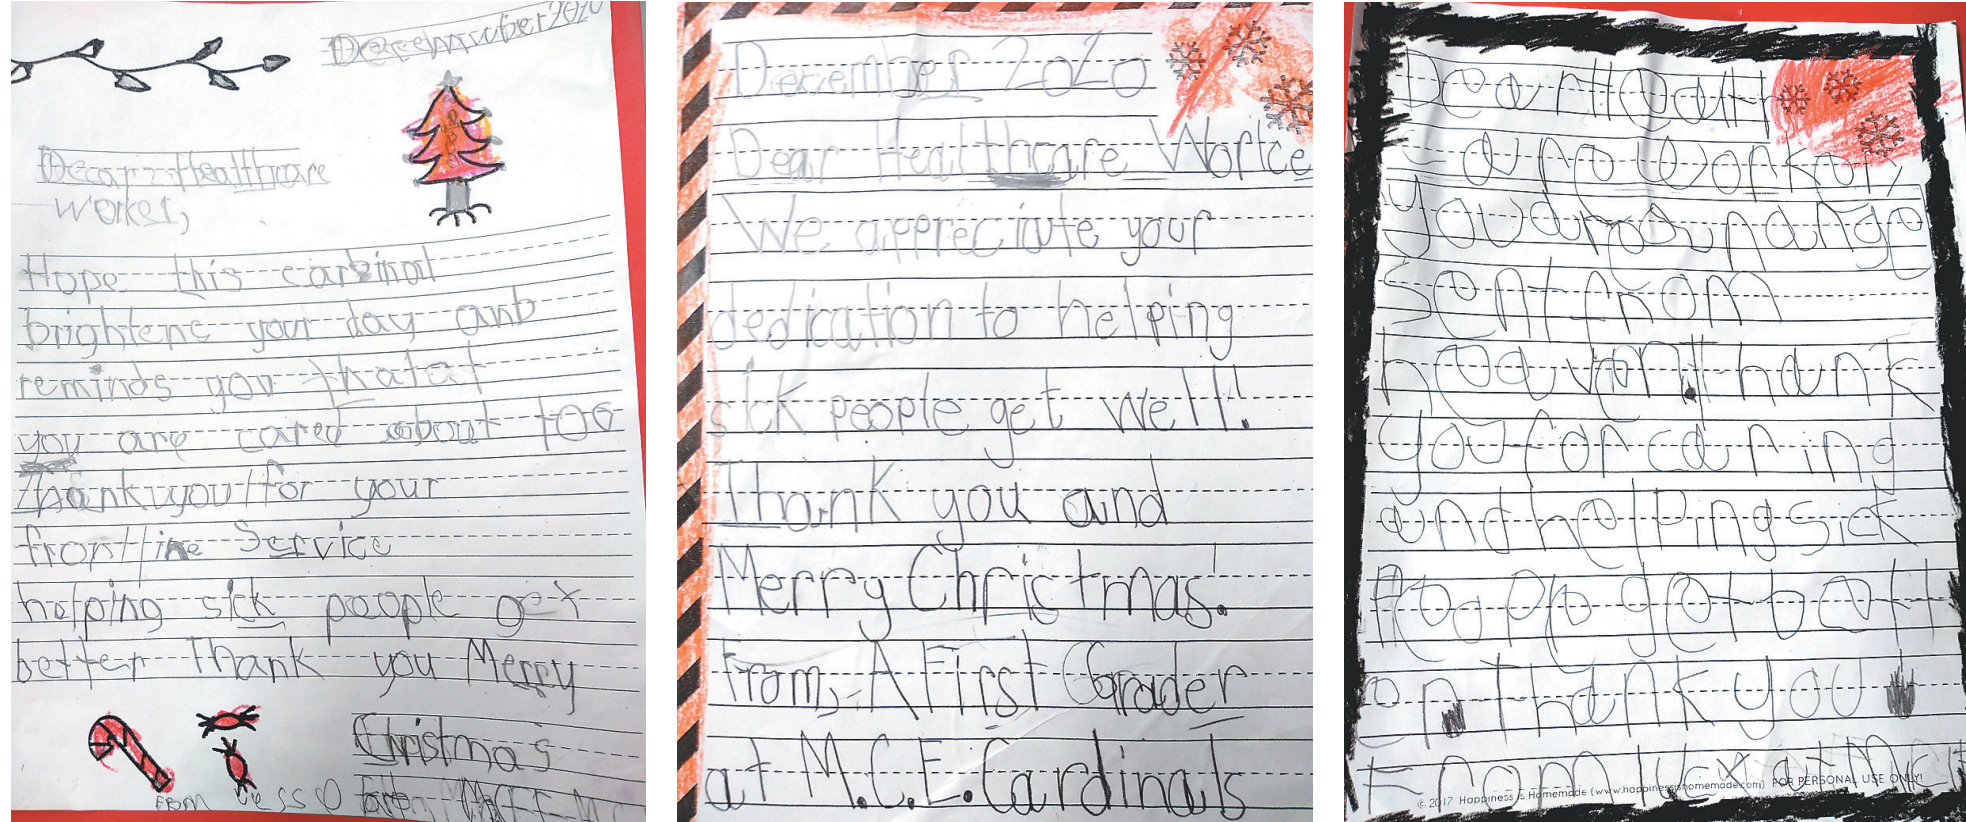 December 2020
Dear Healthcare
worker,
Hope this carbinal
brightens your day anb
reminds you that
you are cared about too
Thank you for your
frontline Service
helping sick people get
better Thank you Merry
Christmas
From
December 2020
Dear Healthcare Worice
We appreciate your
dedication to helping
sick people get well!
Thank you and
Merry Christmas!
from, A First Grader
at M.C.E. Cardinals
Dear Health
worker,
you
sent from
heaven Thank
you for caring
and helping sick
people get bett
en. thank you
From at
FOR PERSONAL USE ONLY!
© 2017 Happiness is Homemade (www.happinessishomemade.com)